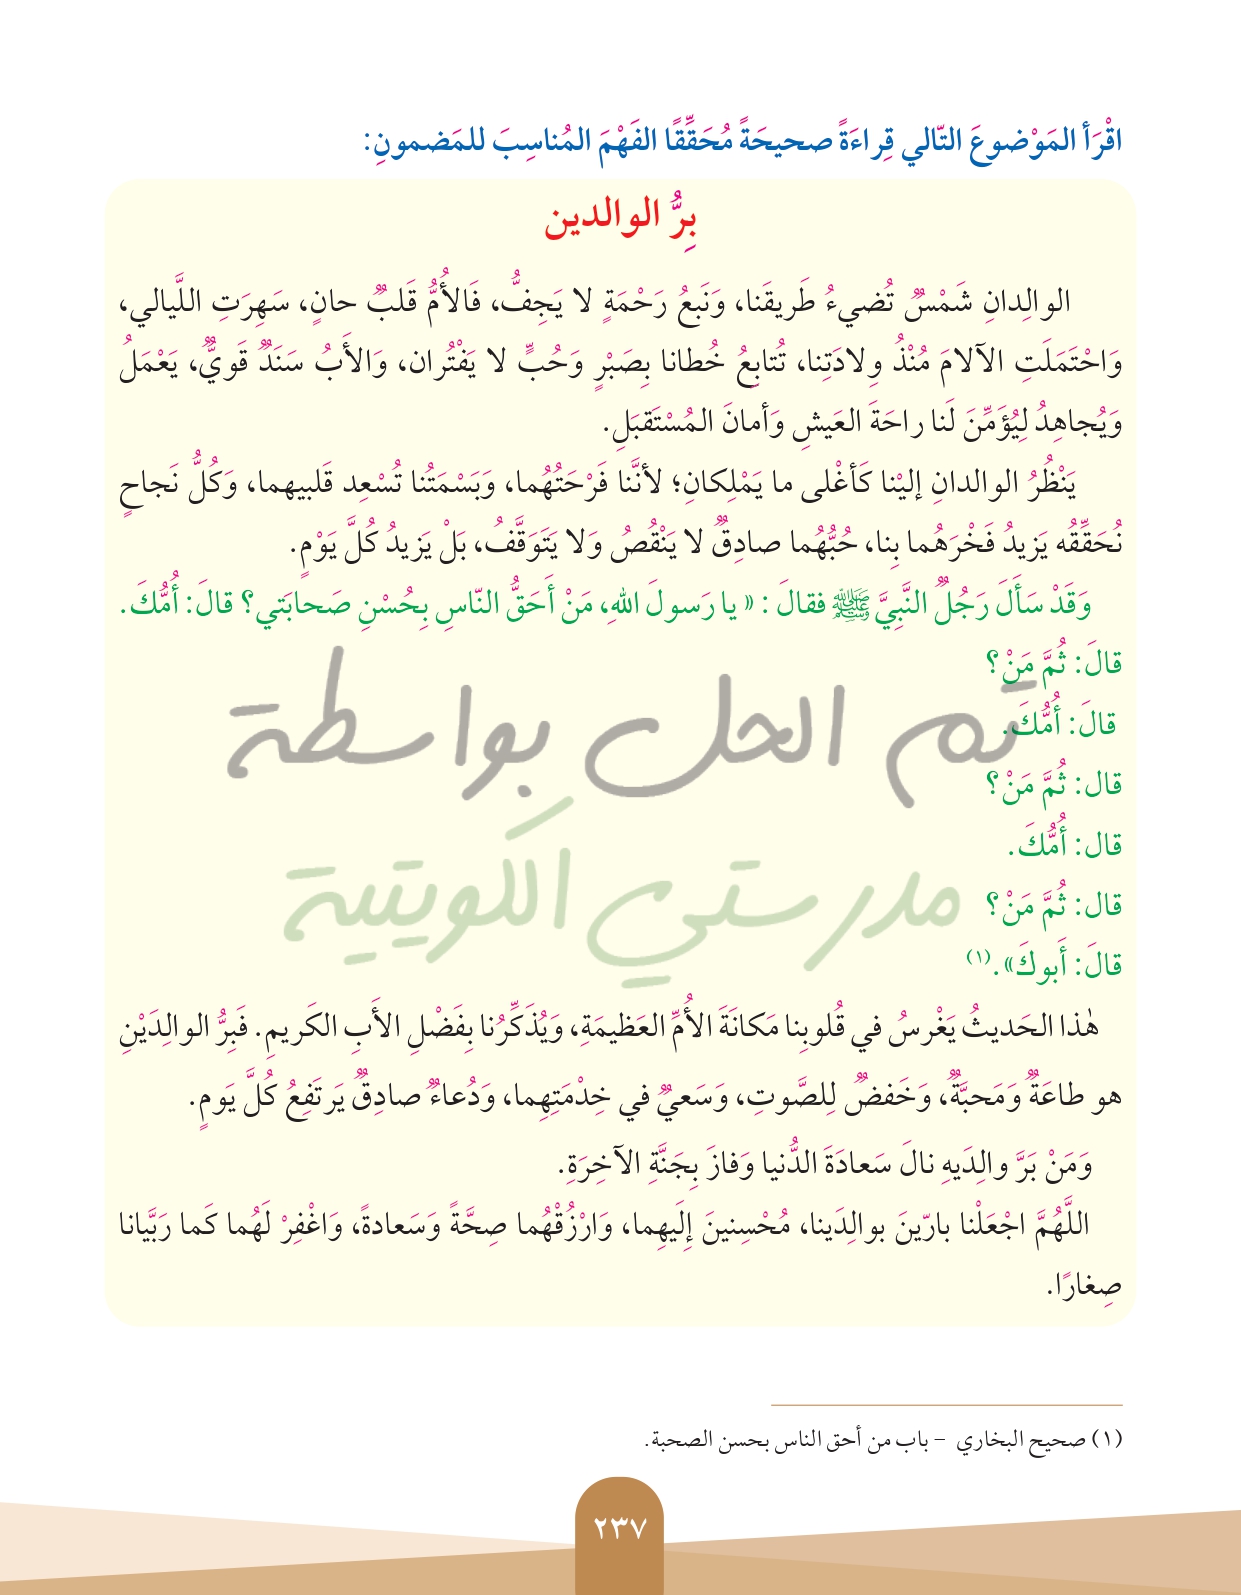 اقْرَأ المَوْضوعَ التّالي قِراءَةً صحيحَةً مُحَقِّقًا الفَهْمَ المُناسِبَ للمَضمونِ:
بِرُّ الوالدين
الوالِدانِ شَمْسٌ تُضيءُ طَريقَنا، وَنَبعُ رَحْمَةٍ لا يَجِفُّ، فَالأُمُّ قَلبٌ حانٍ، سَهِرَتِ اللَّيالي،
وَاحْتَمَلَتِ الآلامَ مُنْذُ وِلادَتِنا، تُتابِعُ خُطانا بِصَبْرٍ وَحُبٍّ لا يَفْتُران، وَالأَبُ سَنَدٌ قَويٌّ، يَعْمَلُ
وَيُجاهِدُ لِيُؤَمِّنَ لَنا راحَةَ العَيشِ وَأمانَ المُسْتَقبَلِ.
يَنْظُرُ الوالدانِ إليْنا كَأغْلى ما يَمْلِكانِ؛ لأنَّنا فَرْحَتُهُما، وَبَسْمَتُنا تُسْعِد قَلبيهما، وَكُلُّ نَجاحٍ
نُحَقِّقُه يَزيدُ فَخْرَهُما بِنا، حُبُّهُما صادِقٌ لا يَنْقُصُ وَلا يَتَوَقَّفُ، بَلْ يَزيدُ كُلَّ يَوْمٍ.
وَقَدْ سَأَلَ رَجُلٌ النَّبِيَّ ﷺ فقالَ : « يا رَسولَ اللهِ، مَنْ أَحَقُّ النّاسِ بِحُسْنِ صَحابَتي؟ قالَ: أُمُّكَ.
قالَ: ثُمَّ مَنْ؟
قالَ: أُمُّكَ.
قال: ثُمَّ مَنْ؟
قال: أُمُّكَ.
قال: ثُمَّ مَنْ؟
قالَ: أَبوكَ».(١)
هٰذا الحَديثُ يَغْرسُ في قُلوبِنا مَكانَةَ الأُمِّ العَظيمَةِ، وَيُذَكِّرُنا بِفَضْلِ الأَبِ الكَريمِ. فَبِرُّ الوالِدَيْنِ
هو طاعَةٌ وَمَحبَّةٌ، وَخَفضٌ لِلصَّوتِ، وَسَعيٌ في خِدْمَتِهِما، وَدُعاءٌ صادِقٌ يَرتَفِعُ كُلَّ يَومٍ.
وَمَنْ بَرَّ والِدَيهِ نالَ سَعادَةَ الدُّنيا وَفازَ بِجَنَّةِ الآخِرَةِ.
اللَّهُمَّ اجْعَلْنا بارّينَ بوالِدَينا، مُحْسِنينَ إِلَيهِما، وَارْزُقْهُما صِحَّةً وَسَعادةً، وَاغْفِرْ لَهُما كَما رَبَّيانا
صِغارًا.
تم الحل بواسطة
مدرستي الكويتية
(١) صحيح البخاري – باب من أحق الناس بحسن الصحبة.
٢٣٧